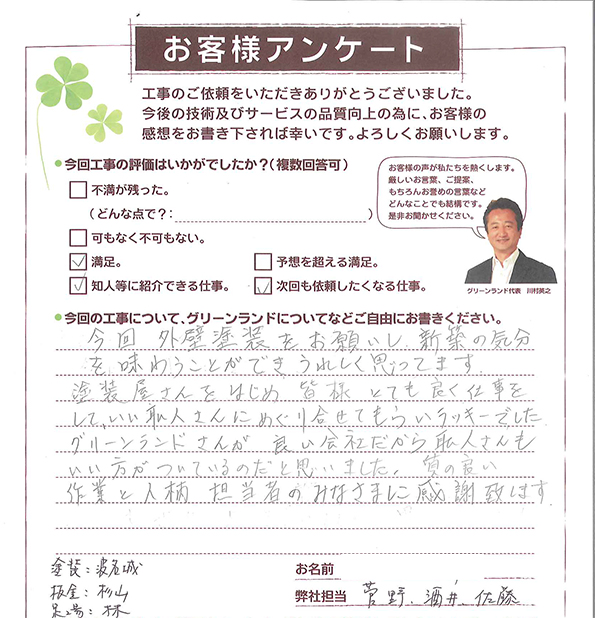 お客様アンケート
工事のご依頼をいただきありがとうございました。
今後の技術及びサービスの品質向上の為に、お客様の
感想をお書き下されば幸いです。よろしくお願いします。
●今回工事の評価はいかがでしたか？（複数回答可）
不満が残った。
（どんな点で？：　）
可もなく不可もない。
満足。
予想を超える満足。
知人等に紹介できる仕事。
次回も依頼したくなる仕事。
お客様の声が私たちを熱くします。
厳しいお言葉、ご提案、
もちろんお誉めの言葉など
どんなことでも結構です。
是非お聞かせください。
グリーンランド代表　川村英之
●今回の工事について、グリーンランドについてなどご自由にお書きください。
今回 外壁塗装をお願いし 新築の気分
を味わうことができうれしく思ってます
塗装屋さんをはじめ 皆様 とても良く仕事を
して、いい職人さんにめぐり合せてもらいラッキーでした
グリーンランドさんが 良い会社だから 職人さんも
いい方がついているのだと思いました。質の良い
作業と人柄 担当者のみなさまに感謝致します
塗装：波名城
板金：杉山
足場：林
お名前
弊社担当　菅野、酒井、佐藤